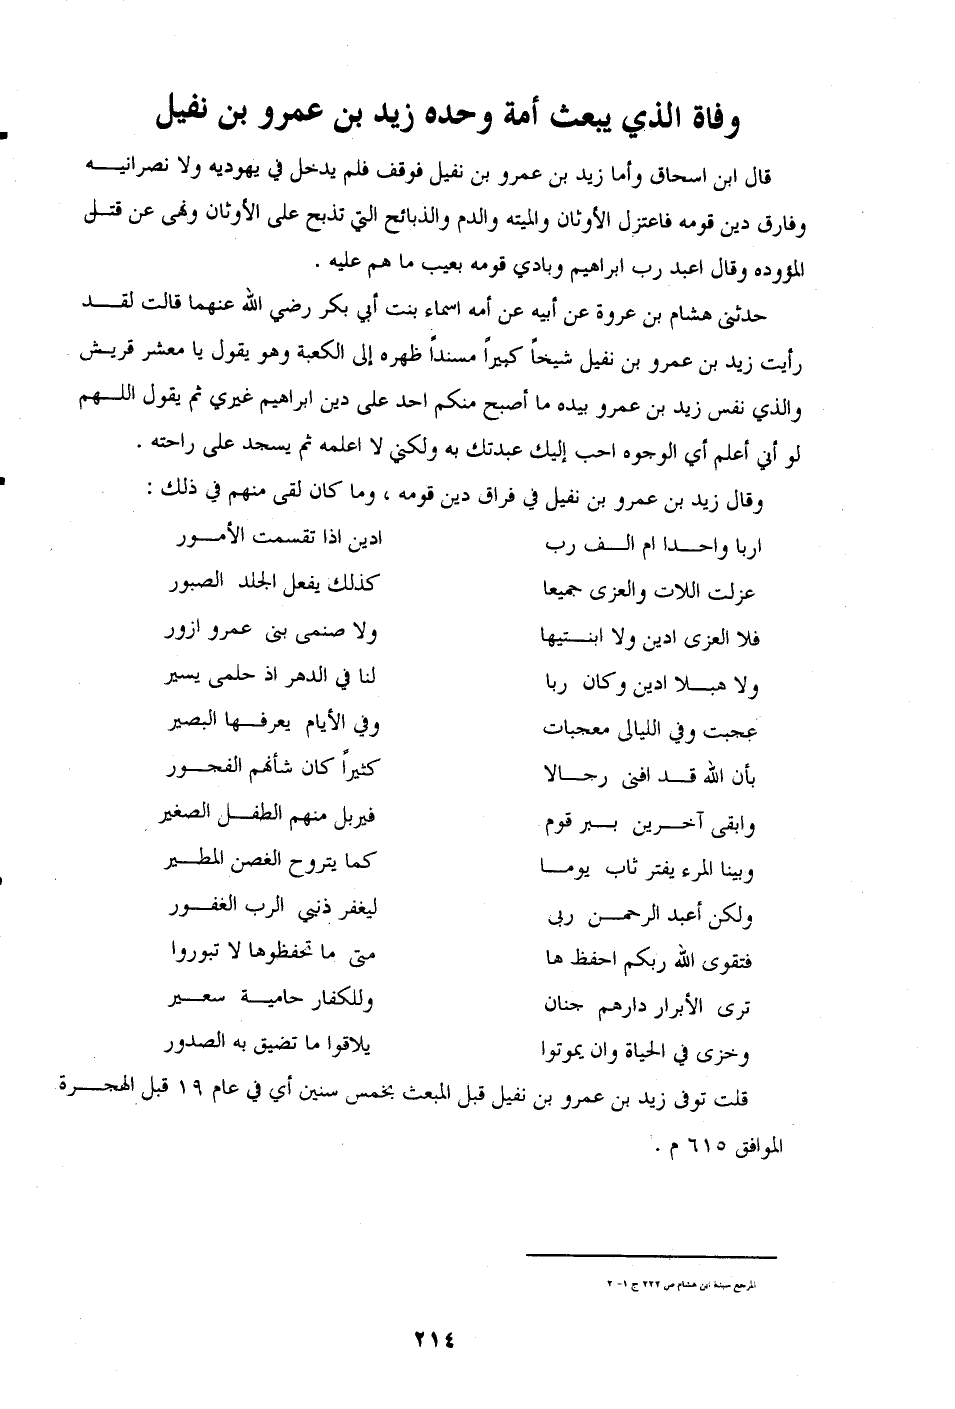 وفاة الذي يبعث أمة وحده زيد بن عمرو بن نفيل
قال ابن اسحاق وأما زيد بن عمرو بن نفيل فوقف فلم يدخل في يهوديه ولا نصرانيـــه
وفارق دين قومه فاعتزل الأوثان والميته والدم والذبائح التي تذبح على الأوثان ونهى عن قتـــل
المؤوده وقال اعبد رب ابراهيم وبادي قومه بعيب ما هم عليه .
حدثني هشام بن عروة عن أبيه عن أمه اسماء بنت أبي بكر رضي الله عنهما قالت لقـــد
رأيت زيد بن عمرو بن نفيل شيخاً كبيراً مسنداً ظهره إلى الكعبة وهو يقول يا معشر قريش
والذي نفس زيد بن عمرو بيده ما أصبح منكم احد على دين ابراهيم غيري ثم يقول اللـــهم
لو أني أعلم أي الوجوه احب إليك عبدتك به ولكني لا اعلمه ثم يسجد على راحته .
وقال زيد بن عمرو بن نفيل في فراق دين قومه ، وما كان لقى منهم في ذلك :
اربا واحـــدا ام الـــف رب ادين اذا تقسمت الأمـــور
عزلت اللات والعزى جميعا كذلك يفعل الجلد الصبور
فلا العزى ادين ولا ابنـــتيها ولا صنمى بنى عمرو ازور
ولا هبـــلا ادين وكان ربا لنا في الدهر اذ حلمى يسير
عجبت وفي الليالى معجبات وفي الأيام يعرفـــها البصير
بأن الله قـــد افنى رجـــالا كثيراً كان شأنهم الفجـــور
وابقى آخـــرين بـــبر قوم فيربل منهم الطفـــل الصغير
وبينا المرء يفتر ثاب يومـــا كما يتروح الغصن المطـــير
ولكن أعبد الرحمـــن ربى ليغفر ذنبي الرب الغفـــور
فتقوى الله ربكم احفظ ها متى ما تحفظوها لا تبوروا
ترى الأبرار دارهم جنان وللكفار حاميـــة سعـــير
وخزى في الحياة وان يموتوا يلاقوا ما تضيق به الصدور
قلت توفى زيد بن عمرو بن نفيل قبل المبعث بخمس سنين أي في عام ١٩ قبل الهجـــرة
الموافق ٦١٥ م .
المرجع سيىة ابن هشام ص ٢٢٢ ج ١- ٢
٢١٤